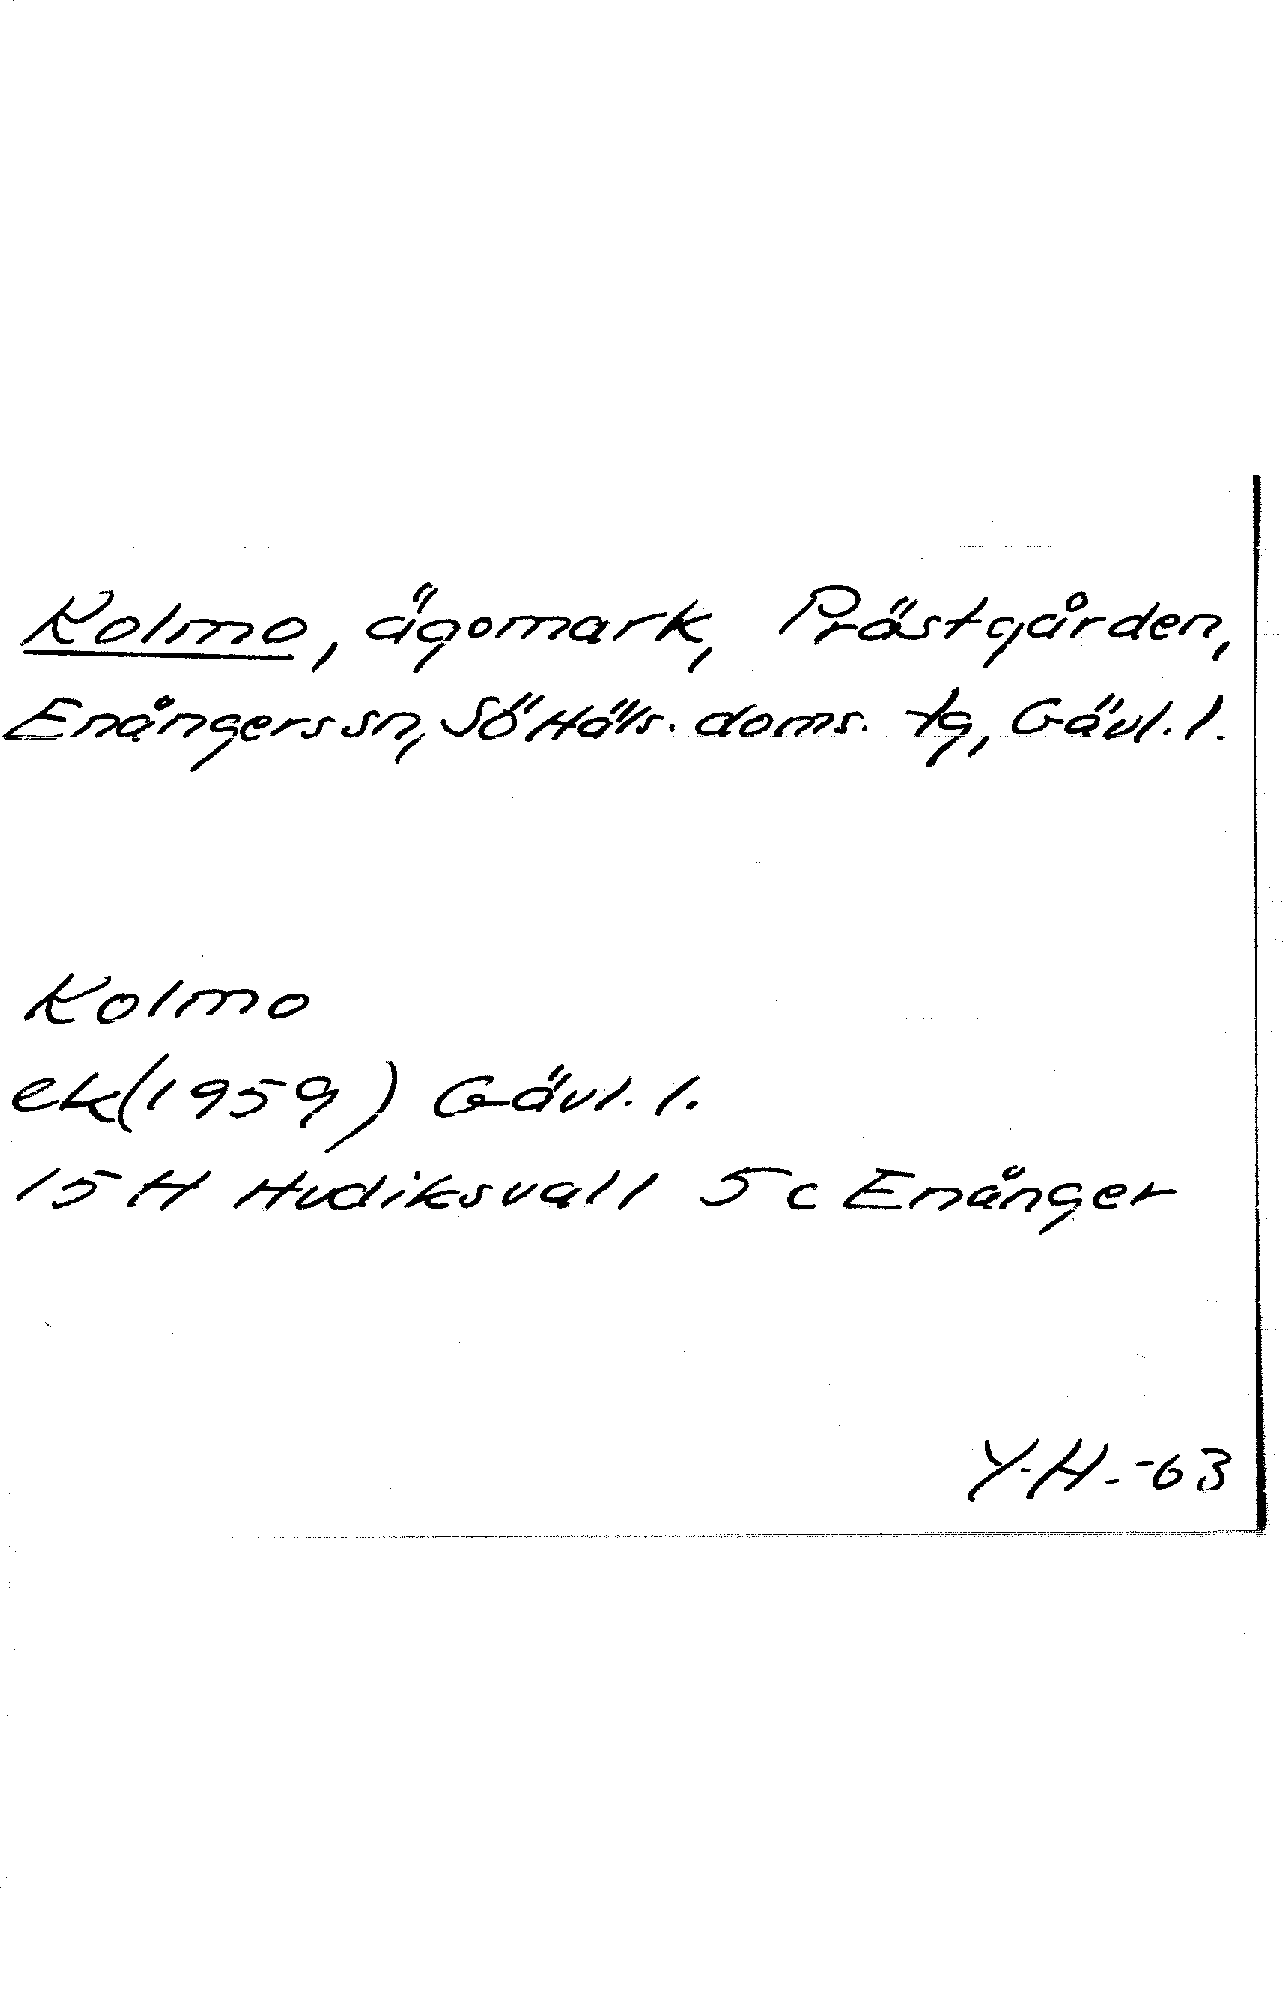 Kolmo, ägomark, Prästgården,
Enångers sn, Sö Häls. doms. tg, Gävl. l.
Kolmo
ek (1959) Gävl. l.
15 H Hudiksvall 5 c Enånger
Y.H. -63